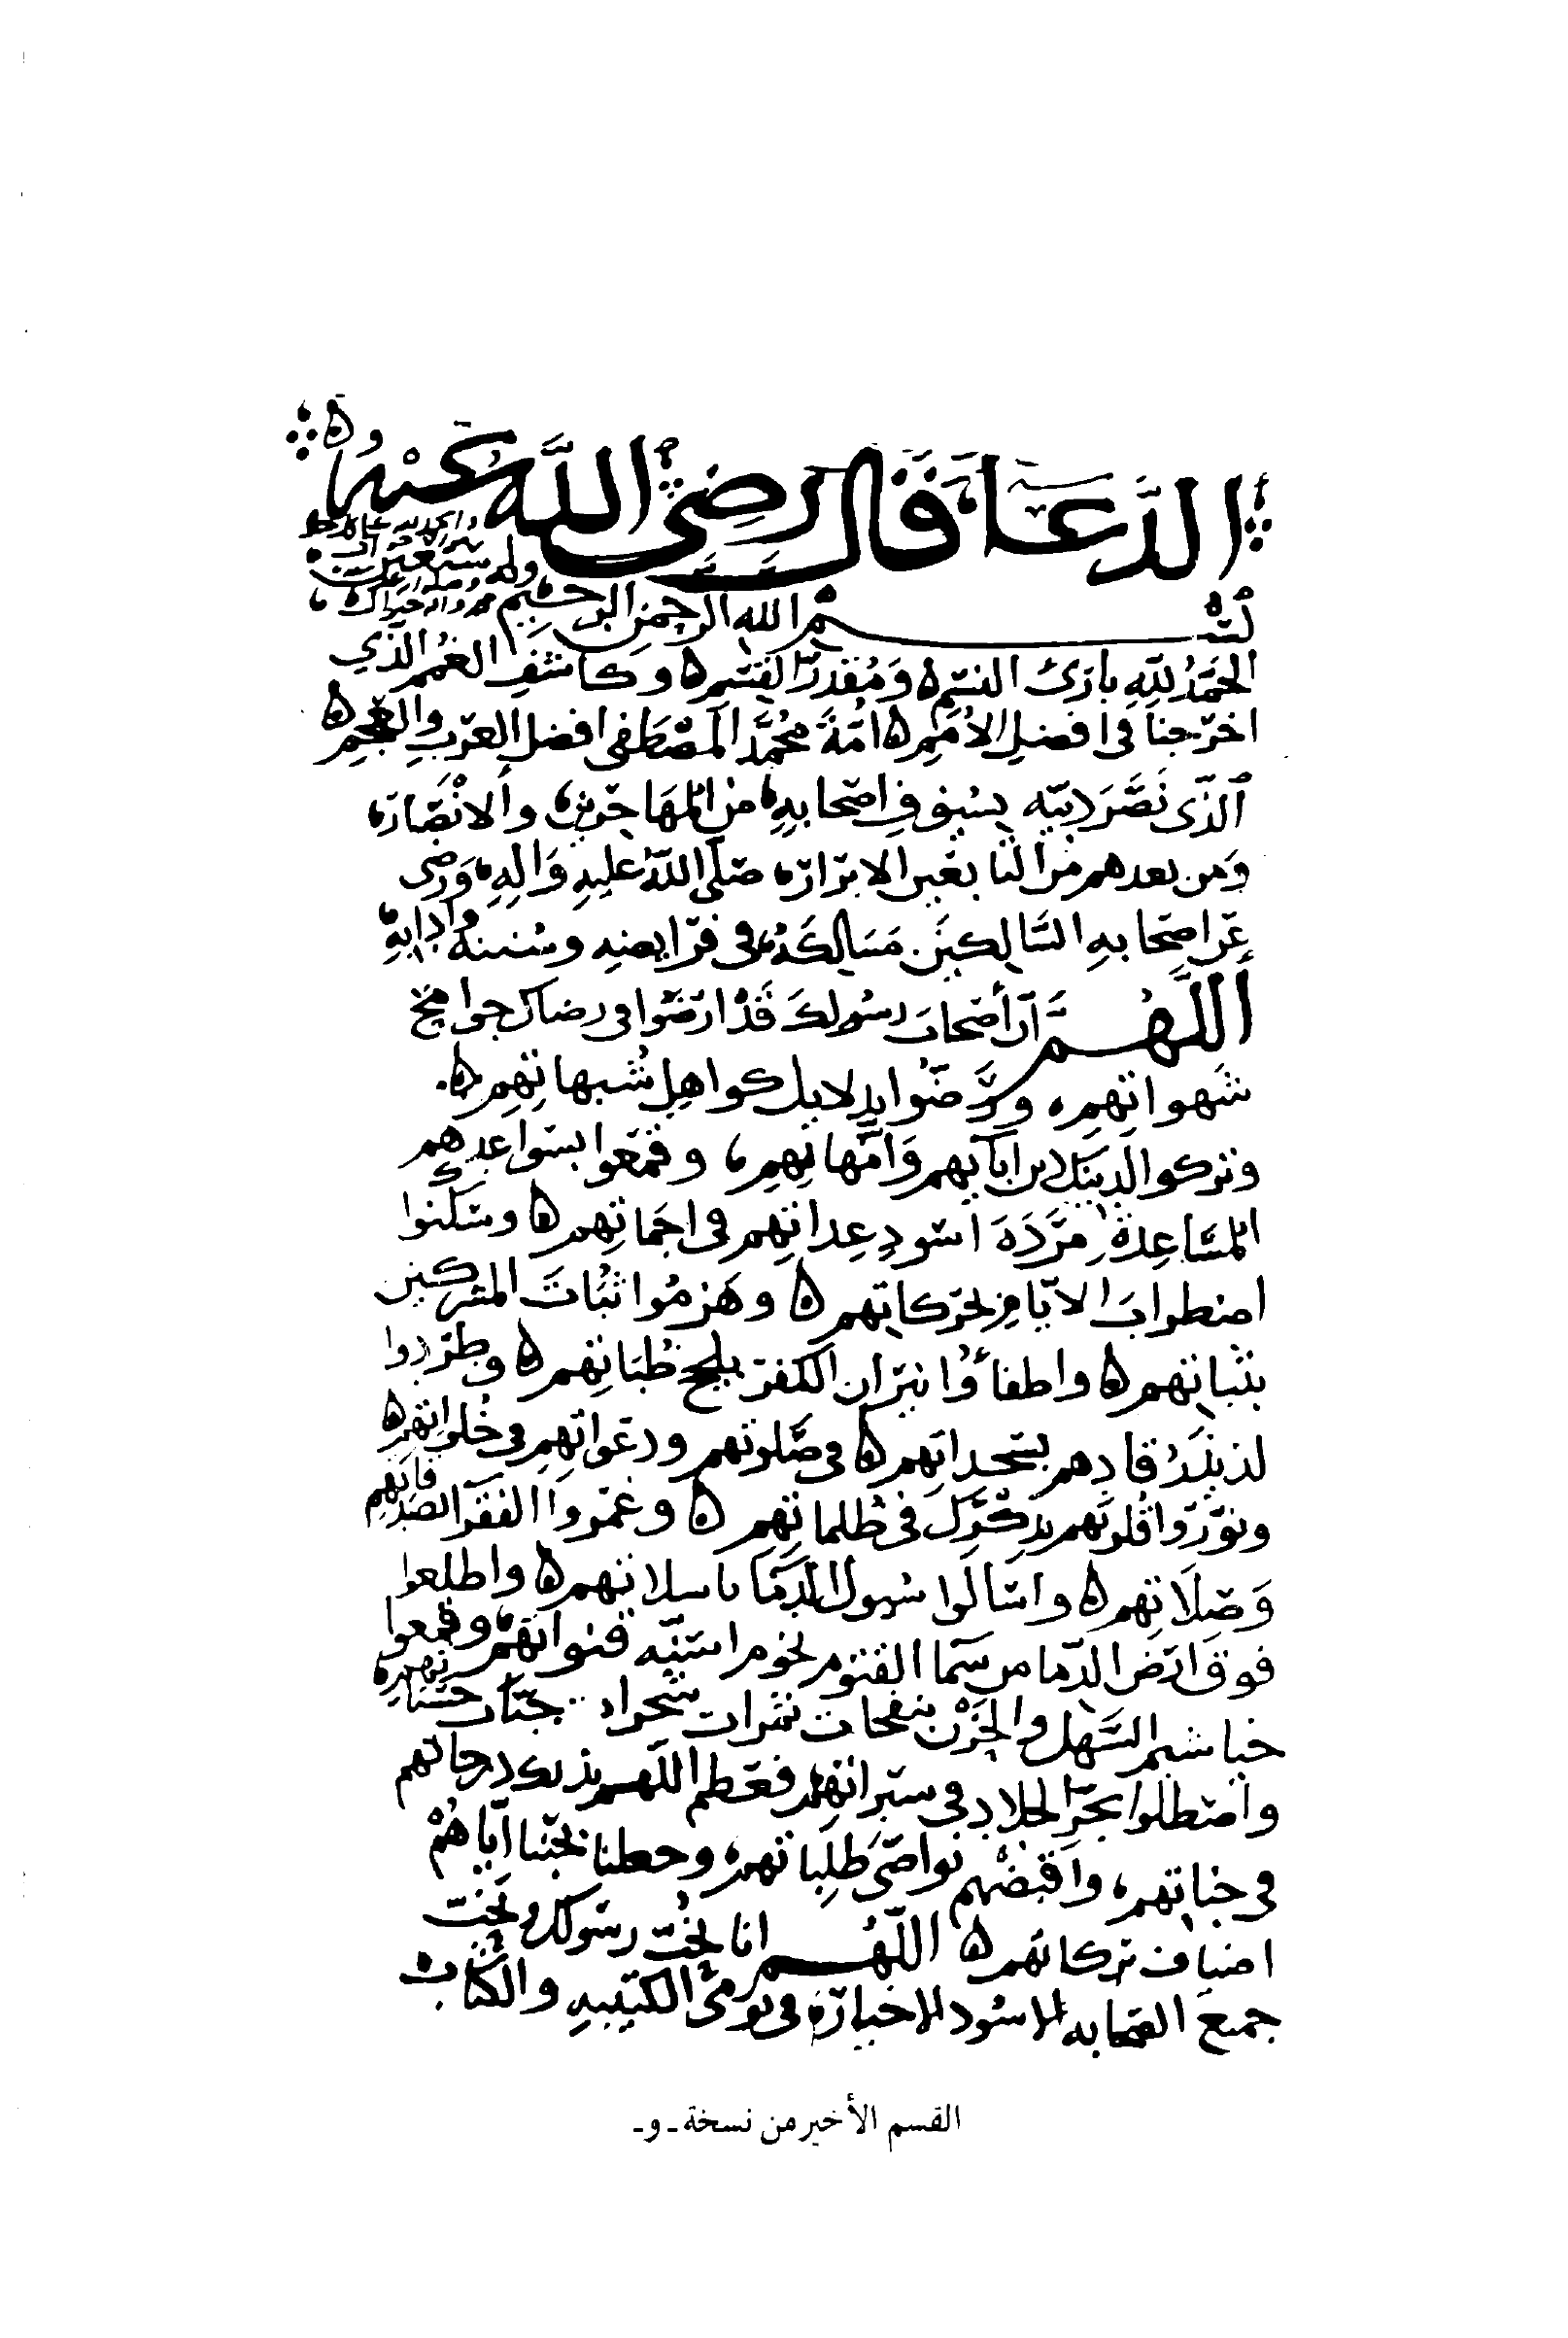 الدعَا قَال رَضِيَ اللَّه عَنْهُ
بسم الله الرحمن الرحيم
الحَمْدُ لِلَّهِ بارئ النسَمِ وَمُقدر القِسَمِ وكاشفِ الغُمَمِ الذي
اخرَجنا في افضلِ الأُمَمِ أُمَّةَ محُمَّد المصْطَفى افضل العَرَبِ والعَجم
الذي نَصَرَ دينَه بسُيوف اصْحابِهِ من المهَاجرين والانْصَار
وَمن بعدهم من التابعين الابرار صَلى اللهُ عليهِ وَالِهِ وَرضى
عن اصحابهِ السَّالكينَ مَسَالكَهُ في فرَايضهِ وسُننه وادابه
أللَّهُمَّ ان أصْحابَ رسُولكَ قَدْ ارتضَوا في رضاك جوامح
شَهواتهِم ورَضّوا بدلايل كواهِل شُبهاتِهِم
وتركوا لدينك دين ابآيهم وَامَّهاتِهِم وقمَعوا بسَواعدهم
المسَاعِدةِ مَرَدَةَ اسُودِ عِداتِهم في اجَماتِهم وسَكنوا
اضطرابَ الايام لحَركاتهم وهَزمُوا ثبُاتَ المشركين
بثباتهم واطفأوُا نيرَان الكفر بلجج ظُبَاتِهم وطرَدوا
لذيذَ رُقادِهم بسَجداتِهم في صَلوتهم ودعَواتِهِم في خُلواتهم
ونوَّرَوا قلوبَهم بذِكْرِكَ في ظُلماتِهِم وغمَروا الفقرآ لصَدقاتهم
وَصِلَاتِهم واسَالوا سُهول الدمَا باسلاتهم واطلعوا
فوقَ ارَض الدّما من سَما القتوم نجوم اسَنّه قنواتهم وقمعوا
خياشيم السَهل والحَزْن بنفحات ثمَرات شجراء جنَّات حسَناتهم
واصَطلوا بحَرِّ الجلادِ في سَبراتهم فعَظم اللهم بذلك درجاتهم
في جناتهم واقبضهم نواصىَ طَلِباتهم وجعلنا بحُبّنا اياهُمْ
اضياف بَركاتهم اللَّهُم انا نحُب رسَولكَ ونحُب
جميعَ الصحابه الاسُود الاخيار في يومَى الكتيبهِ والكتاب
القسم الأخير من نسخة ـ و ـ